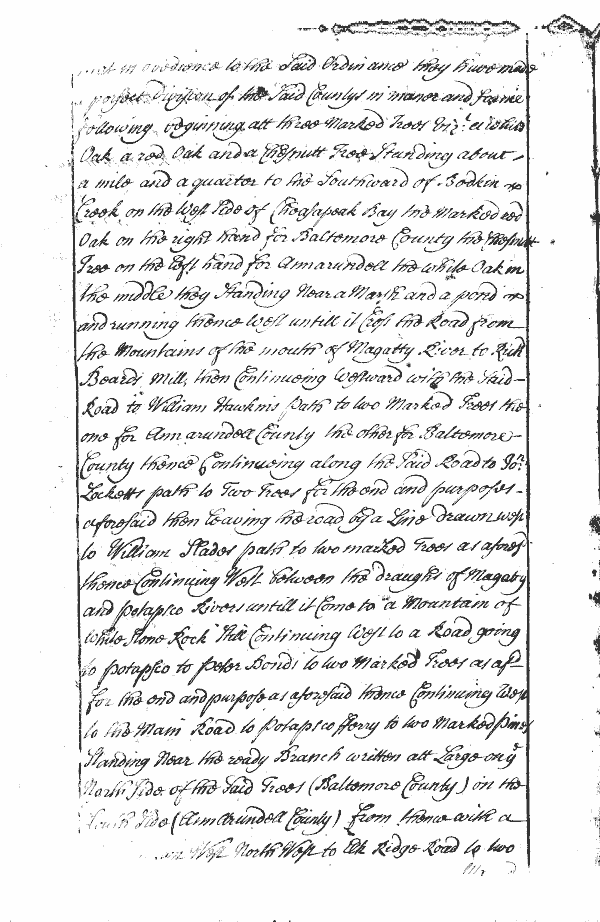 in obedience to the Said Ordinance they have made
perfect Division of the Said Countys in maner and forme
following, beginning att three Marked Trees Viz.t a white
Oak a red Oak and a Chesnutt Tree Standing about
a mile and a quarter to the Southward of Bodkin
Creek on the West Side of Cheasapeak Bay the Marked red
Oak on the right hand for Baltemore County the Chesnutt
Tree on the Left hand for Annarundell the white Oak in
the middle they Standing Near a Marsh and a pond
and running thence West untill it Cross the Road from
the Mountains of the mouth of Magatty River to Rich
Beards Mill, then Continueing Westward with the Said
Road to William Hawkins path to two Marked Trees the
one for Annarundell County the other for Baltemore
County thence Continueing along the Said Road to Jo:
Locketts path to Two Trees for the end and purposes
aforesaid then Leaving the road by a Line drawn west
to William Slades path to two marked Trees as afores
thence Continuing West between the draughts of Magaty
and potapsco Rivers untill it Come to a Mountain of
white Stone Rock Still Continuing West to a Road going
to potapsco to peter Bonds to two Marked Trees as af
for the end and purpose as aforesaid thence Continuing West
to the Main Road to potapsco fferry to two Marked pines
Standing Near the ready Branch written att Large on y
North Side of the Said Trees (Baltemore County) on the
South Side (Ann Arundell County) from thence with a
West North West to Elk Ridge Road to two